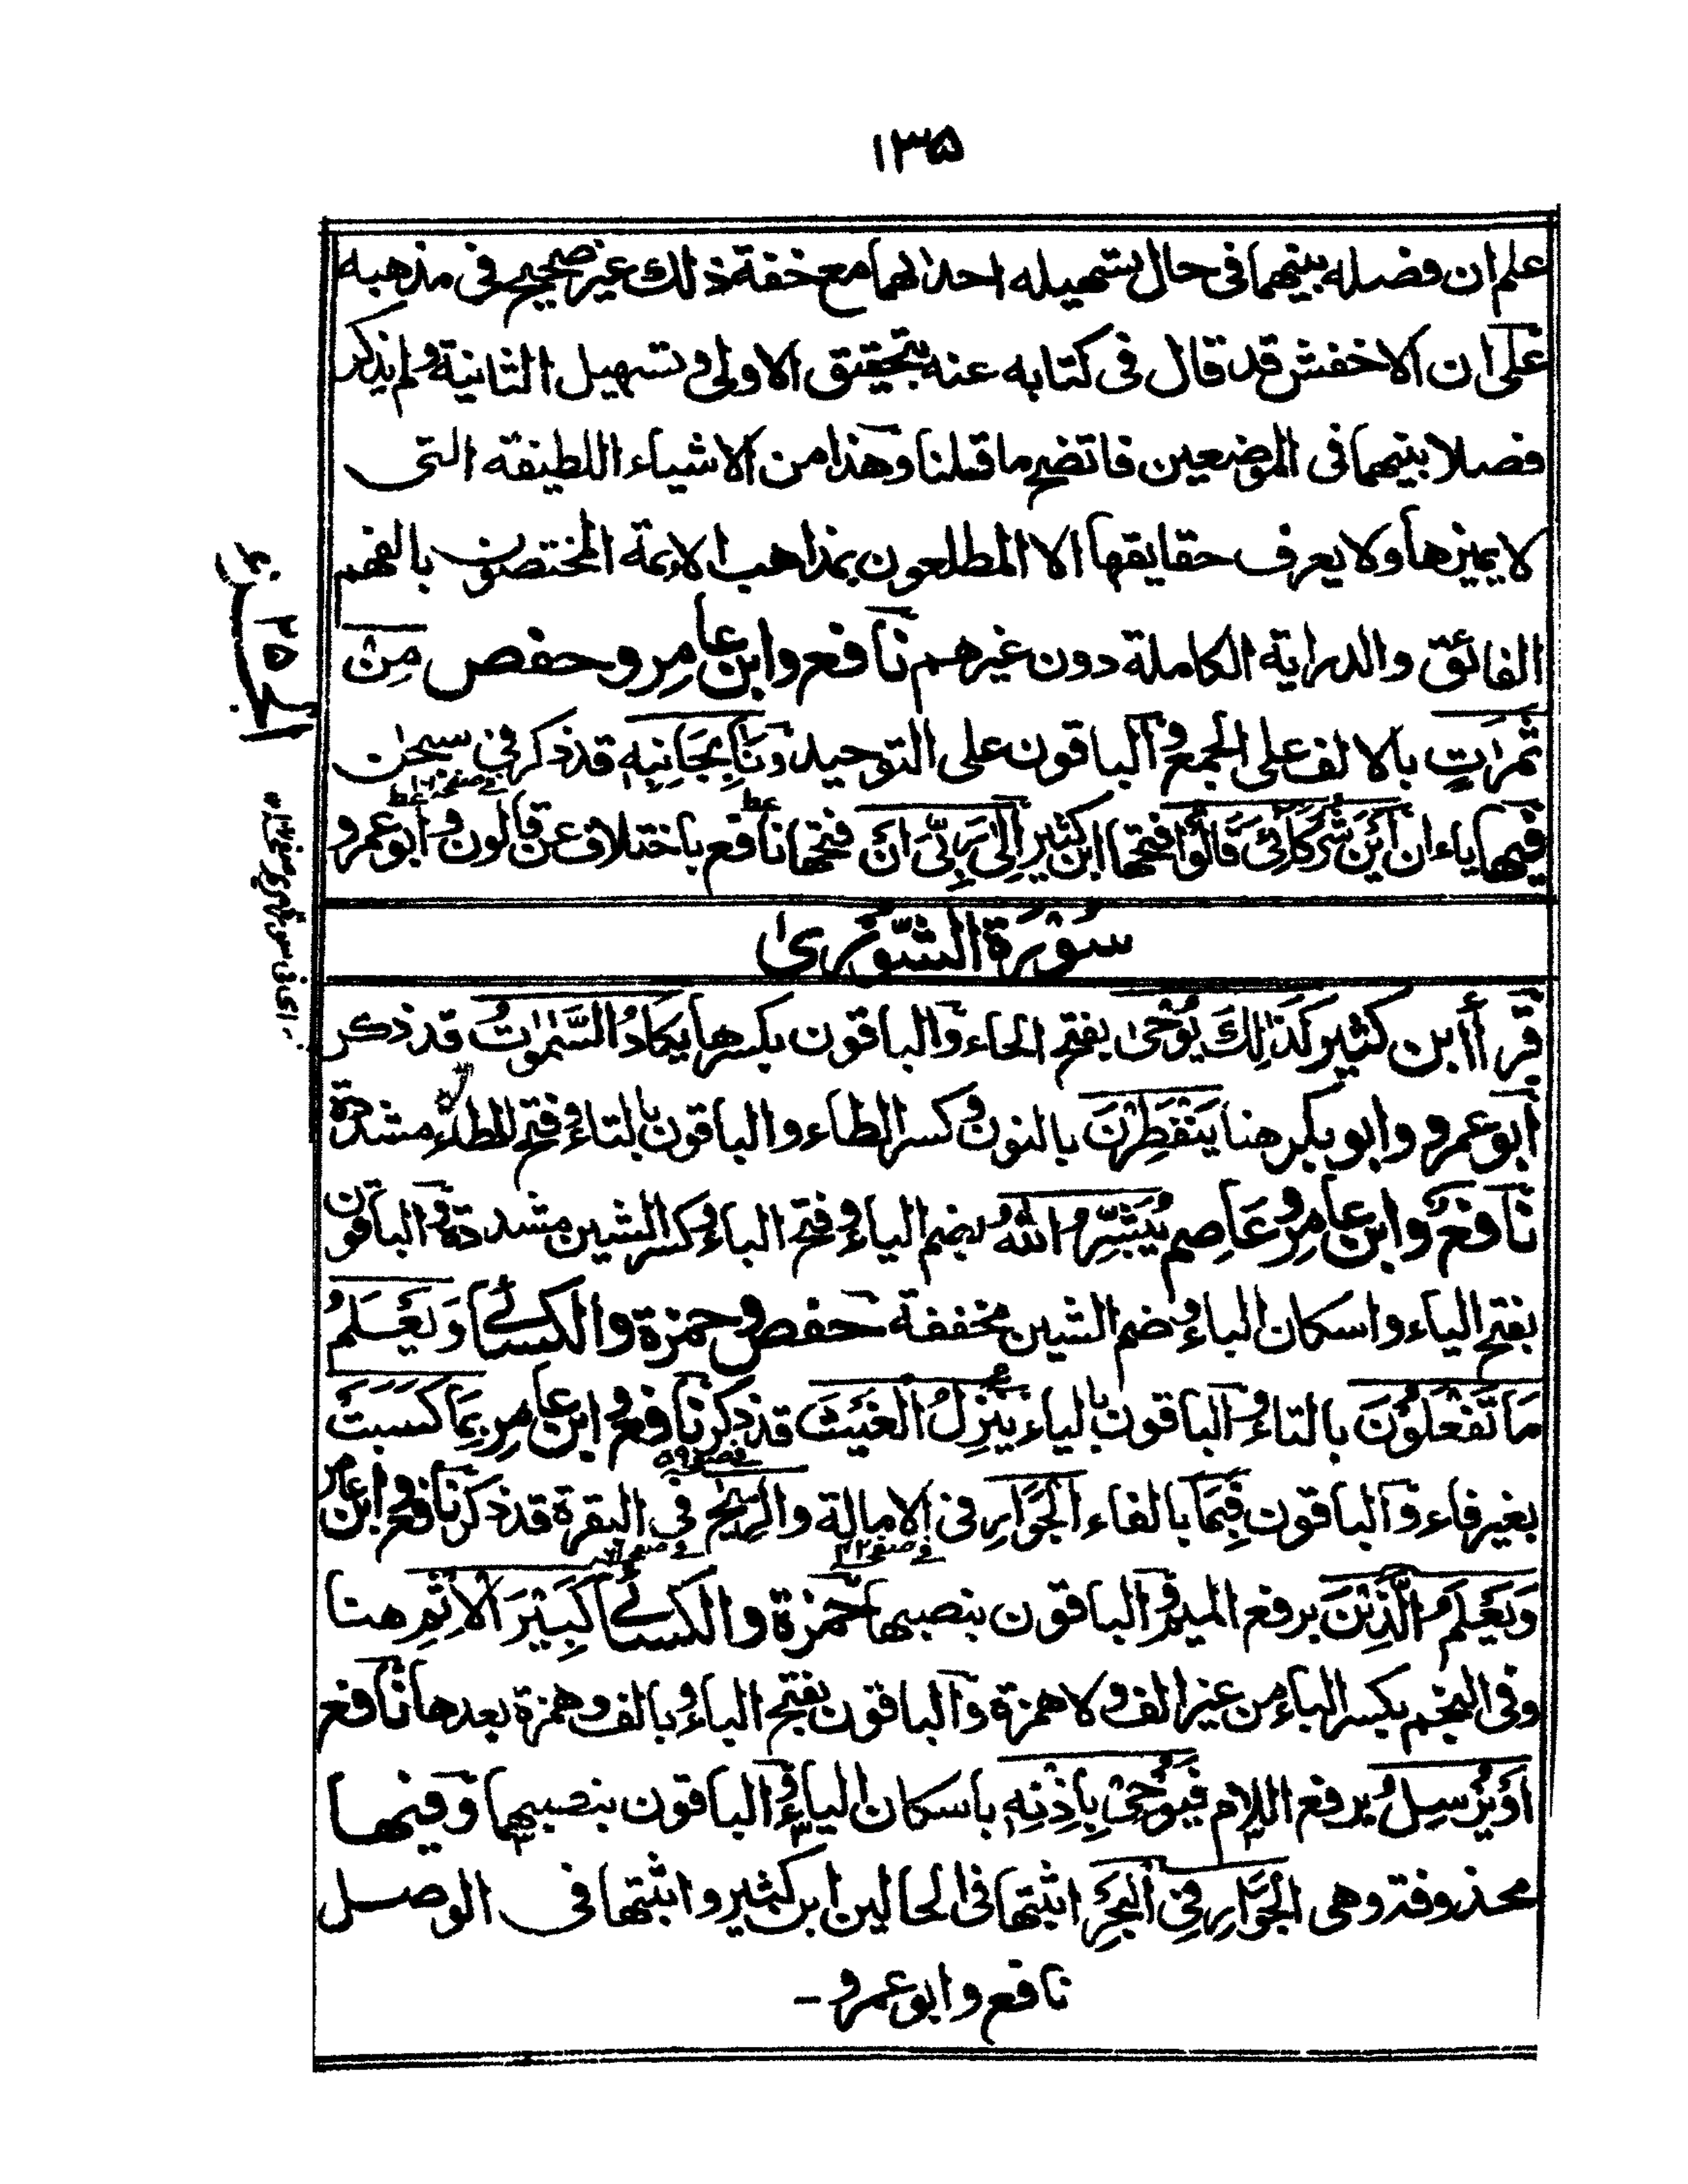 ۱۳۵
علم ان فصله بينهما فى حال تسهيله احدٰهما مع خفة ذلك غير صحيح فى مذهبه
على ان الاخفش قد قال فى كتابه عنه بتحقيق الاولى و تسهيل الثانية و لم يذكر
فصلا بينهما فى الموضعين فاتضح ما قلنا وهذا من الاشياء اللطيفة التى
لا يميزها ولا يعرف حقايقها الا المطلعون بمذاهب الايمة المختصون بالفهم
الفائق والدراية الكاملة دون غيرهم نافع وابن عامر و حفص مِنْ
ثَمَرٰتٍ بالالف على الجمع و الباقون على التوحيد وَنَاٰ بِجَانِبِهٖ قد ذكر فى سبحٰن
فيها ياء ان اَيْنَ شُرَكَآئِىَ قَالُوْا فتحها ابن كثير اِلٰى رَبِّىَ اِنَّ فتحها نافع باختلاف عن قالون و ابو عمرو
سُوْرَةُ الشُّوْرىٰ
قرأ ابن كثير كَذٰلِكَ يُوْحٰى بفتح الحاء والباقون بكسرها يَكَادُ السَّمٰوٰتُ قد ذكر
ابو عمرو وابو بكر هنا يَنْفَطِرْنَ بالنون و كسر الطاء و الباقون بالتاء و فتح الطاء مشددة
نافع وابن عامر و عاصم يُبَشِّرُ اللّٰهُ بضم الياء و فتح الباء و كسر الشين مشددة و الباقون
بفتح الياء و اسكان الباء و ضم الشين مخففة حفص و حمزة والكسائى وَيَعْلَمُ
مَا تَفْعَلُوْنَ بالتاء و الباقون بالياء يُنَزِّلُ الْغَيْثَ قد ذكر نافع و ابن عامر بِمَا كَسَبَتْ
بغير فاء و الباقون فَبِمَا بالفاء الْجَوَارِ فى الامالة والرِّيْحَ فى البقرة قد ذكر نافع و ابن عامر
وَيَعْلَمُ الَّذِيْنَ برفع الميم و الباقون بنصبها حمزة و الكسائى كَبِيْرَ الْاِثْمِ هنا
وفى النجم بكسر الباء من غير الف و لا همزة و الباقون بفتح الباء و بالف و همزة بعدها نافع
اَوْ يُرْسِلُ برفع اللام فَيُوْحِىْ بِاِذْنِهٖ باسكان الياء و الباقون بنصبهما و فيها
محذوفة وهى الْجَوَارِ فِى الْبَحْرِ اثبتها فى الحالين ابن كثير و اثبتها فى الوصل
نافع و ابو عمرو -
الجزء ۲۵